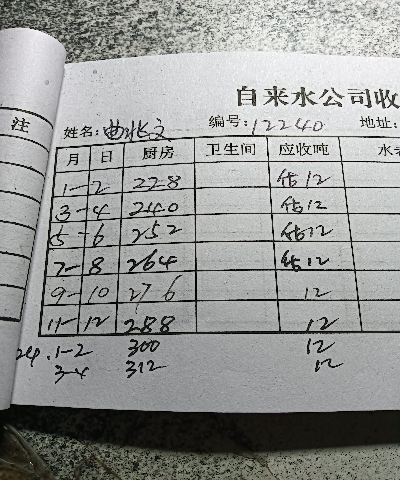 自来水公司收
注
姓名: 曲兆文 编号: 12240 地址:
月 日 厨房 卫生间 应收吨 水
1-2 228 估12
3-4 240 估12
5-6 252 估12
7-8 264 估12
9-10 276 12
11-12 288 12
24.1-2 300 12
3-4 312 12